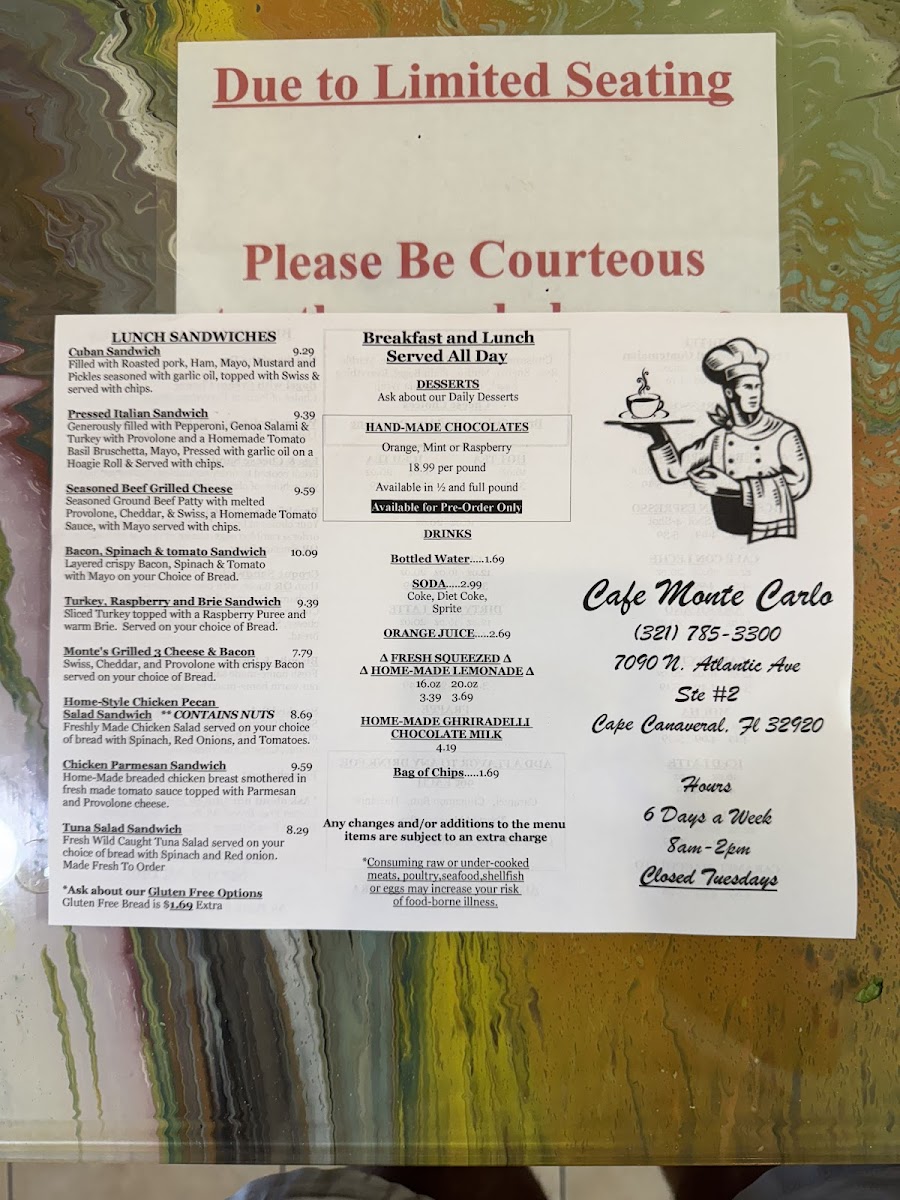 Due to Limited Seating
Please Be Courteous
LUNCH SANDWICHES
Cuban Sandwich 9.29
Filled with Roasted pork, Ham, Mayo, Mustard and
Pickles seasoned with garlic oil, topped with Swiss &
served with chips.
Pressed Italian Sandwich 9.39
Generously filled with Pepperoni, Genoa Salami &
Turkey with Provolone and a Homemade Tomato
Basil Bruschetta, Mayo, Pressed with garlic oil on a
Hoagie Roll & Served with chips.
Seasoned Beef Grilled Cheese 9.59
Seasoned Ground Beef Patty with melted
Provolone, Cheddar, & Swiss, a Homemade Tomato
Sauce, with Mayo served with chips.
Bacon, Spinach & tomato Sandwich 10.09
Layered crispy Bacon, Spinach & Tomato
with Mayo on your Choice of Bread.
Turkey, Raspberry and Brie Sandwich 9.39
Sliced Turkey topped with a Raspberry Puree and
warm Brie. Served on your choice of Bread.
Monte's Grilled 3 Cheese & Bacon 7.79
Swiss, Cheddar, and Provolone with crispy Bacon
served on your choice of Bread.
Home-Style Chicken Pecan
Salad Sandwich ** CONTAINS NUTS 8.69
Freshly Made Chicken Salad served on your choice
of bread with Spinach, Red Onions, and Tomatoes.
Chicken Parmesan Sandwich 9.59
Home-Made breaded chicken breast smothered in
fresh made tomato sauce topped with Parmesan
and Provolone cheese.
Tuna Salad Sandwich 8.29
Fresh Wild Caught Tuna Salad served on your
choice of bread with Spinach and Red onion.
Made Fresh To Order
*Ask about our Gluten Free Options
Gluten Free Bread is $1.69 Extra
Breakfast and Lunch
Served All Day
DESSERTS
Ask about our Daily Desserts
HAND-MADE CHOCOLATES
Orange, Mint or Raspberry
18.99 per pound
Available in ½ and full pound
Available for Pre-Order Only
DRINKS
Bottled Water.....1.69
SODA.....2.99
Coke, Diet Coke,
Sprite
ORANGE JUICE.....2.69
Δ FRESH SQUEEZED Δ
Δ HOME-MADE LEMONADE Δ
16.oz 20.oz
3.39 3.69
HOME-MADE GHRIRADELLI
CHOCOLATE MILK
4.19
Bag of Chips.....1.69
Any changes and/or additions to the menu
items are subject to an extra charge
*Consuming raw or under-cooked
meats, poultry,seafood,shellfish
or eggs may increase your risk
of food-borne illness.
Cafe Monte Carlo
(321) 785-3300
7090 N. Atlantic Ave
Ste #2
Cape Canaveral, Fl 32920
Hours
6 Days a Week
8am-2pm
Closed Tuesdays